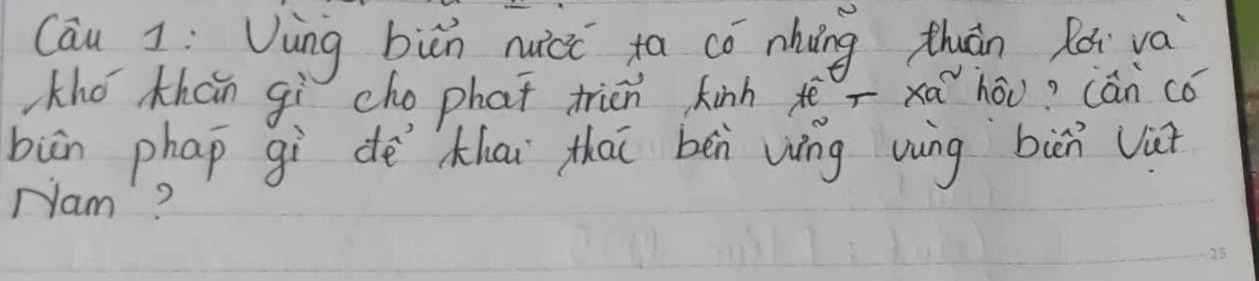 Câu 1: Vùng biển nước ta có những thuận lợi và
khó khăn gì cho phát triển kinh tế - xã hội? Cần có
biện pháp gì để khai thác bền vững vùng biển Việt
Nam?
25